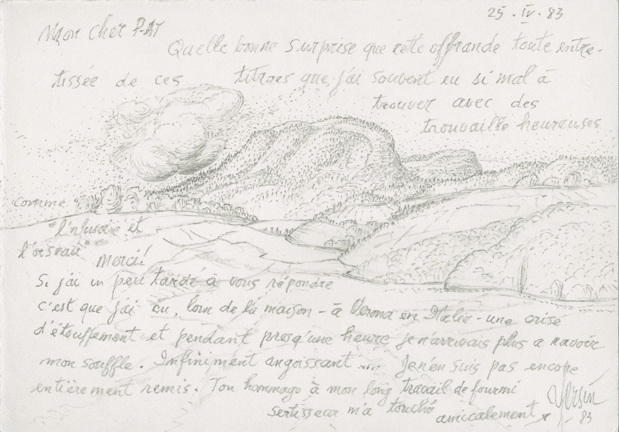 25 · IV · 83
Mon cher PAT
Quelle bonne surprise que cette offrande toute entre-
tissée de ces titres que j'ai souvent eu si mal à
trouver avec des
trouvaille heureuses
comme
"l'infusoire et
l'oiseau" Merci!
Si j'ai un peu tardé à vous répondre
c'est que j'ai eu, loin de la maison - à Verona en Italie - une crise
d'étouffement et pendant presqu'une heure je n'arrivais plus a ravoir
mon souffle. Infiniment angoissant .... Je n'en suis pas encore
entièrement remis. Ton hommage à mon long travail de fourmi
sertisseur m'a touché amicalement
83